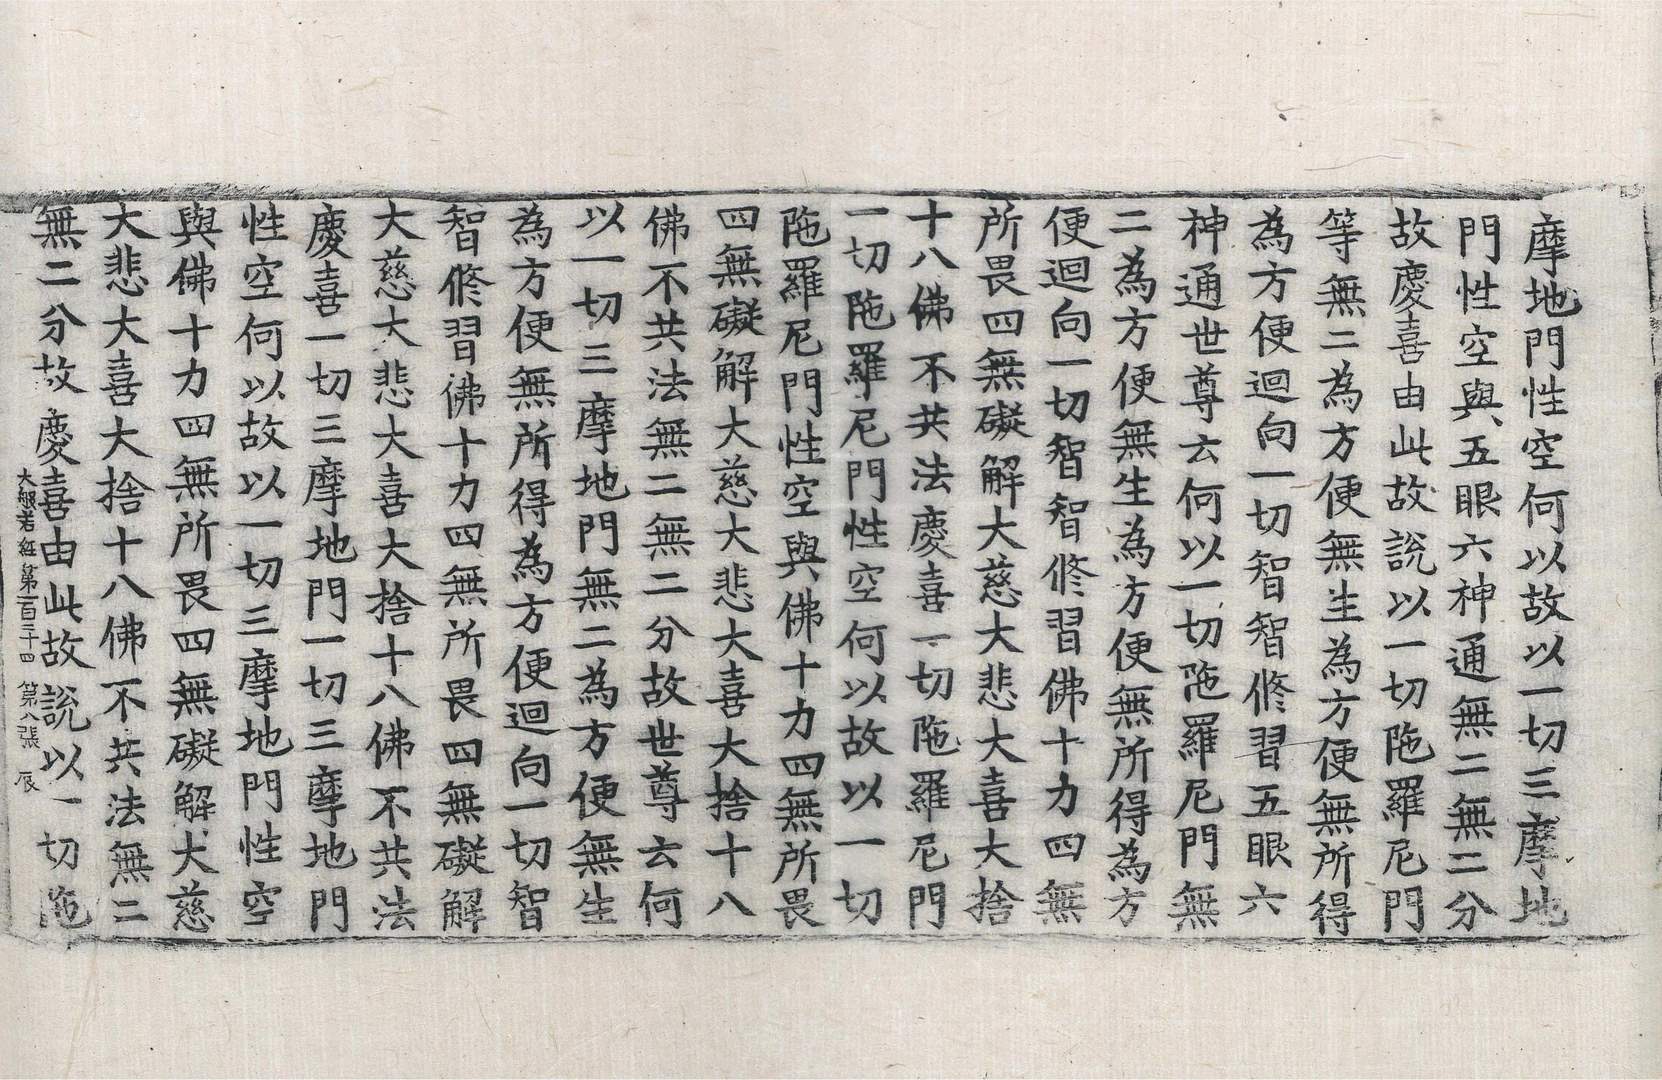 摩地門性空何以故以一切三摩地
門性空與五眼六神通無二無二分
故慶喜由此故說以一切陁羅尼門
等無二為方便無生為方便無所得
為方便迴向一切智智修習五眼六
神通世尊云何以一切陁羅尼門無
二為方便無生為方便無所得為方
便迴向一切智智修習佛十力四無
所畏四無礙解大慈大悲大喜大捨
十八佛不共法慶喜一切陁羅尼門
一切陁羅尼門性空何以故以一切
陁羅尼門性空與佛十力四無所畏
四無礙解大慈大悲大喜大捨十八
佛不共法無二無二分故世尊云何
以一切三摩地門無二為方便無生
為方便無所得為方便迴向一切智
智修習佛十力四無所畏四無礙解
大慈大悲大喜大捨十八佛不共法
慶喜一切三摩地門一切三摩地門
性空何以故以一切三摩地門性空
與佛十力四無所畏四無礙解大慈
大悲大喜大捨十八佛不共法無二
無二分故慶喜由此故說以一切陁
大般若經第一百二十四 第八張 辰